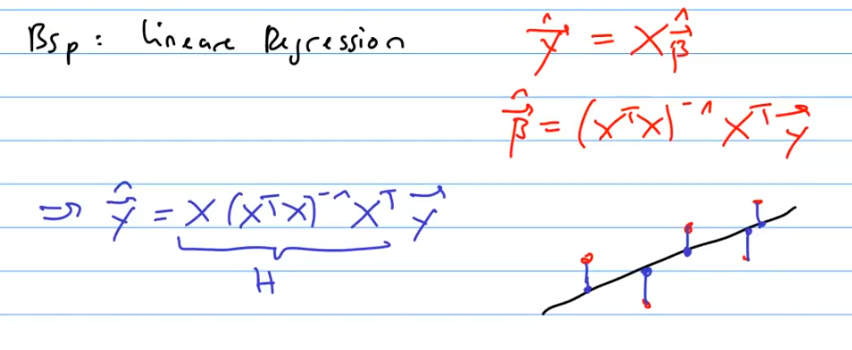 Bsp: Lineare Regression
ŷ⃗ = Xβ̂⃗
β̂⃗ = (XᵀX)⁻¹ Xᵀy⃗
⇒ ŷ⃗ = X(XᵀX)⁻¹Xᵀ y⃗
H